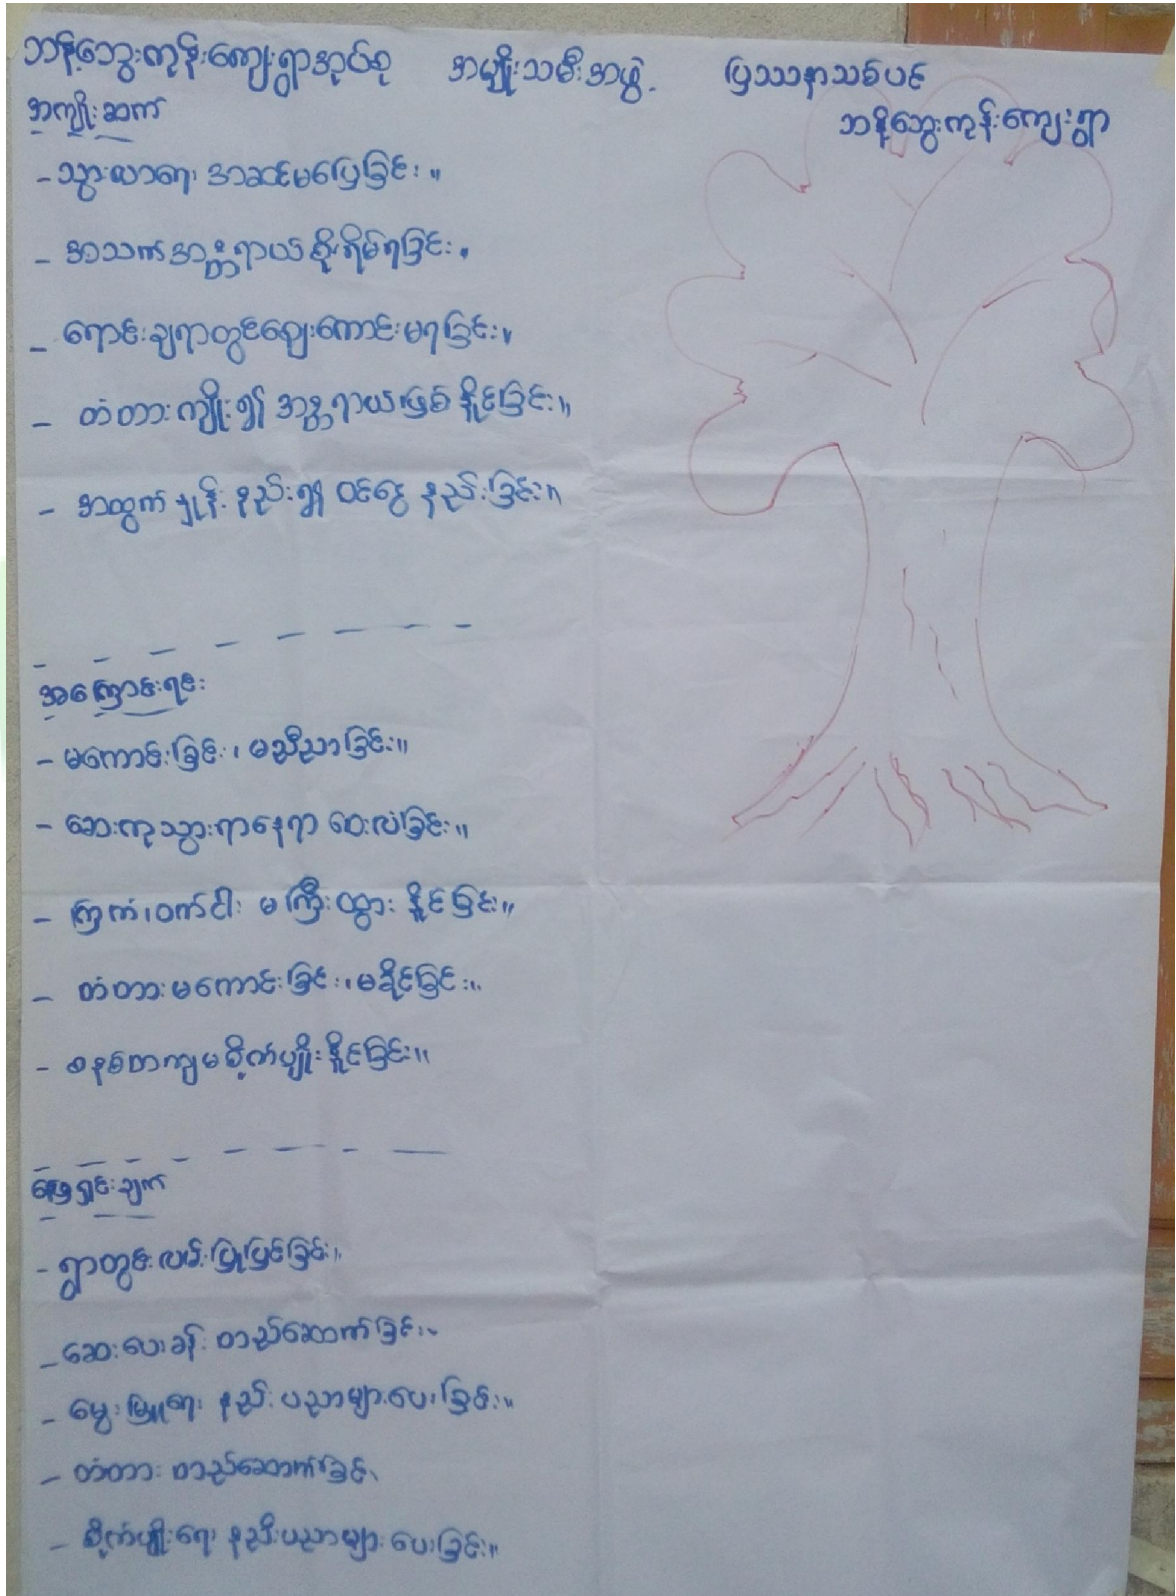 ဘန့်ဘွေးကုန်းကျေးရွာအုပ်စု အမျိုးသမီးအဖွဲ့ ပြဿနာသစ်ပင်
အကျိုးဆက် ဘန့်ဘွေးကုန်းကျေးရွာ
- သွားလာရေး အဆင်မပြေခြင်း။
- အသက်အန္တရာယ်စိုးရိမ်ရခြင်း။
- ရောင်းချရာတွင်ဈေးကောင်းမရခြင်း။
- တံတားကျိုး၍ အန္တရာယ်ဖြစ်နိုင်ခြင်း။
- အထွက်နှုန်းနည်း၍ ဝင်ငွေနည်းခြင်း။
အကြောင်းရင်း
- မကောင်းခြင်း၊ မညီညာခြင်း။
- ဆေးကုသွားရာနေရာ ဝေးလံခြင်း။
- ကြက်၊ဝက်ငါး မကြီးထွားနိုင်ခြင်း။
- တံတားမကောင်းခြင်း၊မခိုင်ခြင်း။
- စနစ်တကျမစိုက်ပျိုးနိုင်ခြင်း။
ဖြေရှင်းချက်
- ရွာတွင်းလမ်းပြုပြင်ခြင်း။
- ဆေးပေးခန်း တည်ဆောက်ခြင်း။
- မွေးမြူရေး နည်းပညာများပေးခြင်း။
- တံတား တည်ဆောက်ခြင်း
- စိုက်ပျိုးရေး နည်းပညာများ ပေးခြင်း။